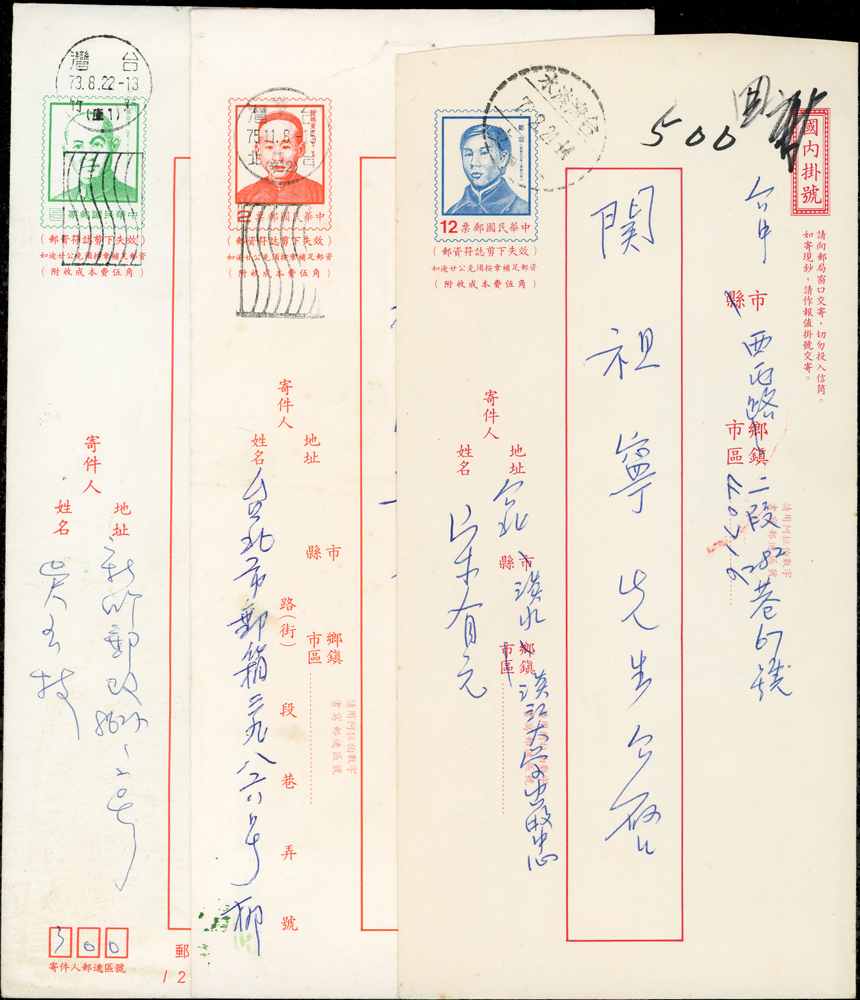 台灣
73.8.22-13
新竹
(庫1)
5
中華民國郵票
(郵資符誌剪下失效)
如逾廿公克須按章補足郵資
(附收成本費伍角)
寄件人
姓名
地址
300
寄件人郵遞區號
郵
12
台灣
75.11.8.-15
台北
2
中華民國郵票
(郵資符誌剪下失效)
如逾廿公克須按章補足郵資
(附收成本費伍角)
寄件人
姓名
地址
台北市郵箱
縣市
路(街)
鄉鎮
市區
段
巷
弄
號
請用阿拉伯數字
書寫郵遞區號
台灣淡水
12
中華民國郵票
(郵資符誌剪下失效)
如逾廿公克須按章補足郵資
(附收成本費伍角)
500
國內掛號
請向郵局窗口交寄,切勿投入信筒。
如寄現鈔,請作報值掛號交寄。
台中
縣市
西屯路
鄉鎮
市區
二段282巷67號
請用阿拉伯數字
書寫郵遞區號
關祖寧先生台啟
寄件人
姓名
地址
台北
縣市
淡水
鄉鎮
市區
淡江大學